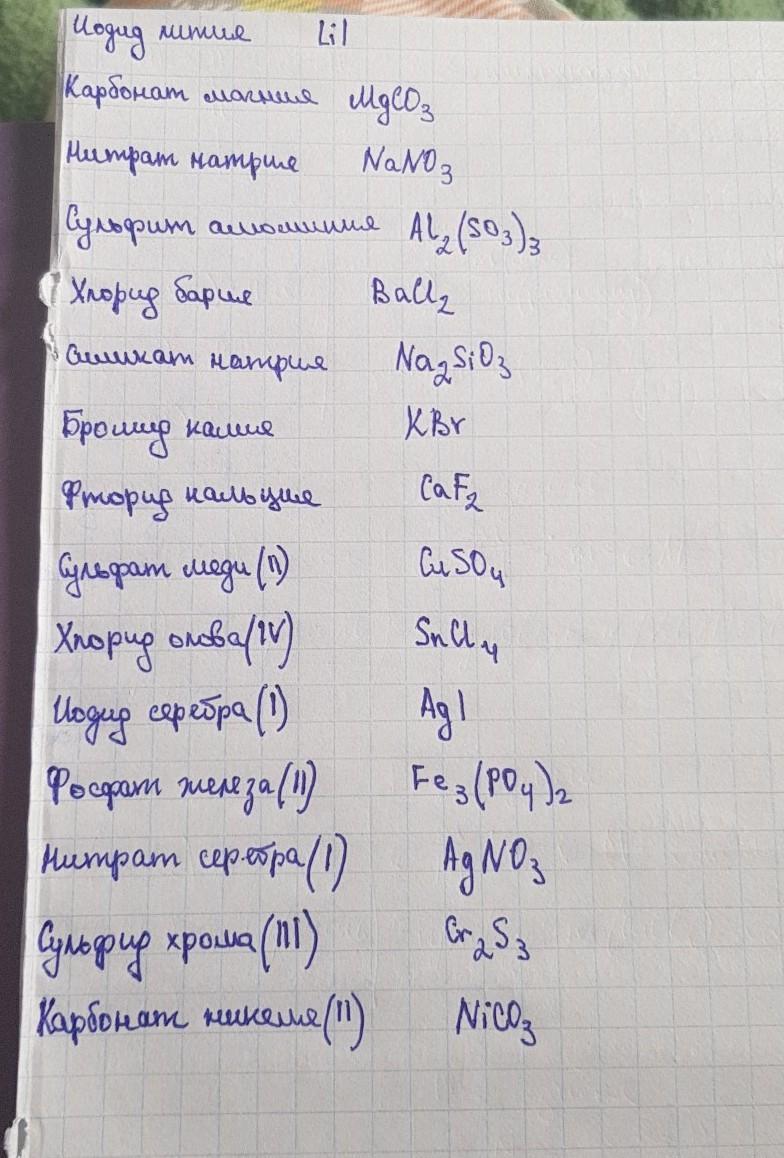 Иодид лития LiI
Карбонат магния MgCO₃
Нитрат натрия NaNO₃
Сульфит алюминия Al₂(SO₃)₃
Хлорид бария BaCl₂
Силикат натрия Na₂SiO₃
Бромид калия KBr
Фторид кальция CaF₂
Сульфат меди(II) CuSO₄
Хлорид олова(IV) SnCl₄
Иодид серебра(I) AgI
Фосфат железа(II) Fe₃(PO₄)₂
Нитрат серебра(I) AgNO₃
Сульфид хрома(III) Cr₂S₃
Карбонат никеля(II) NiCO₃